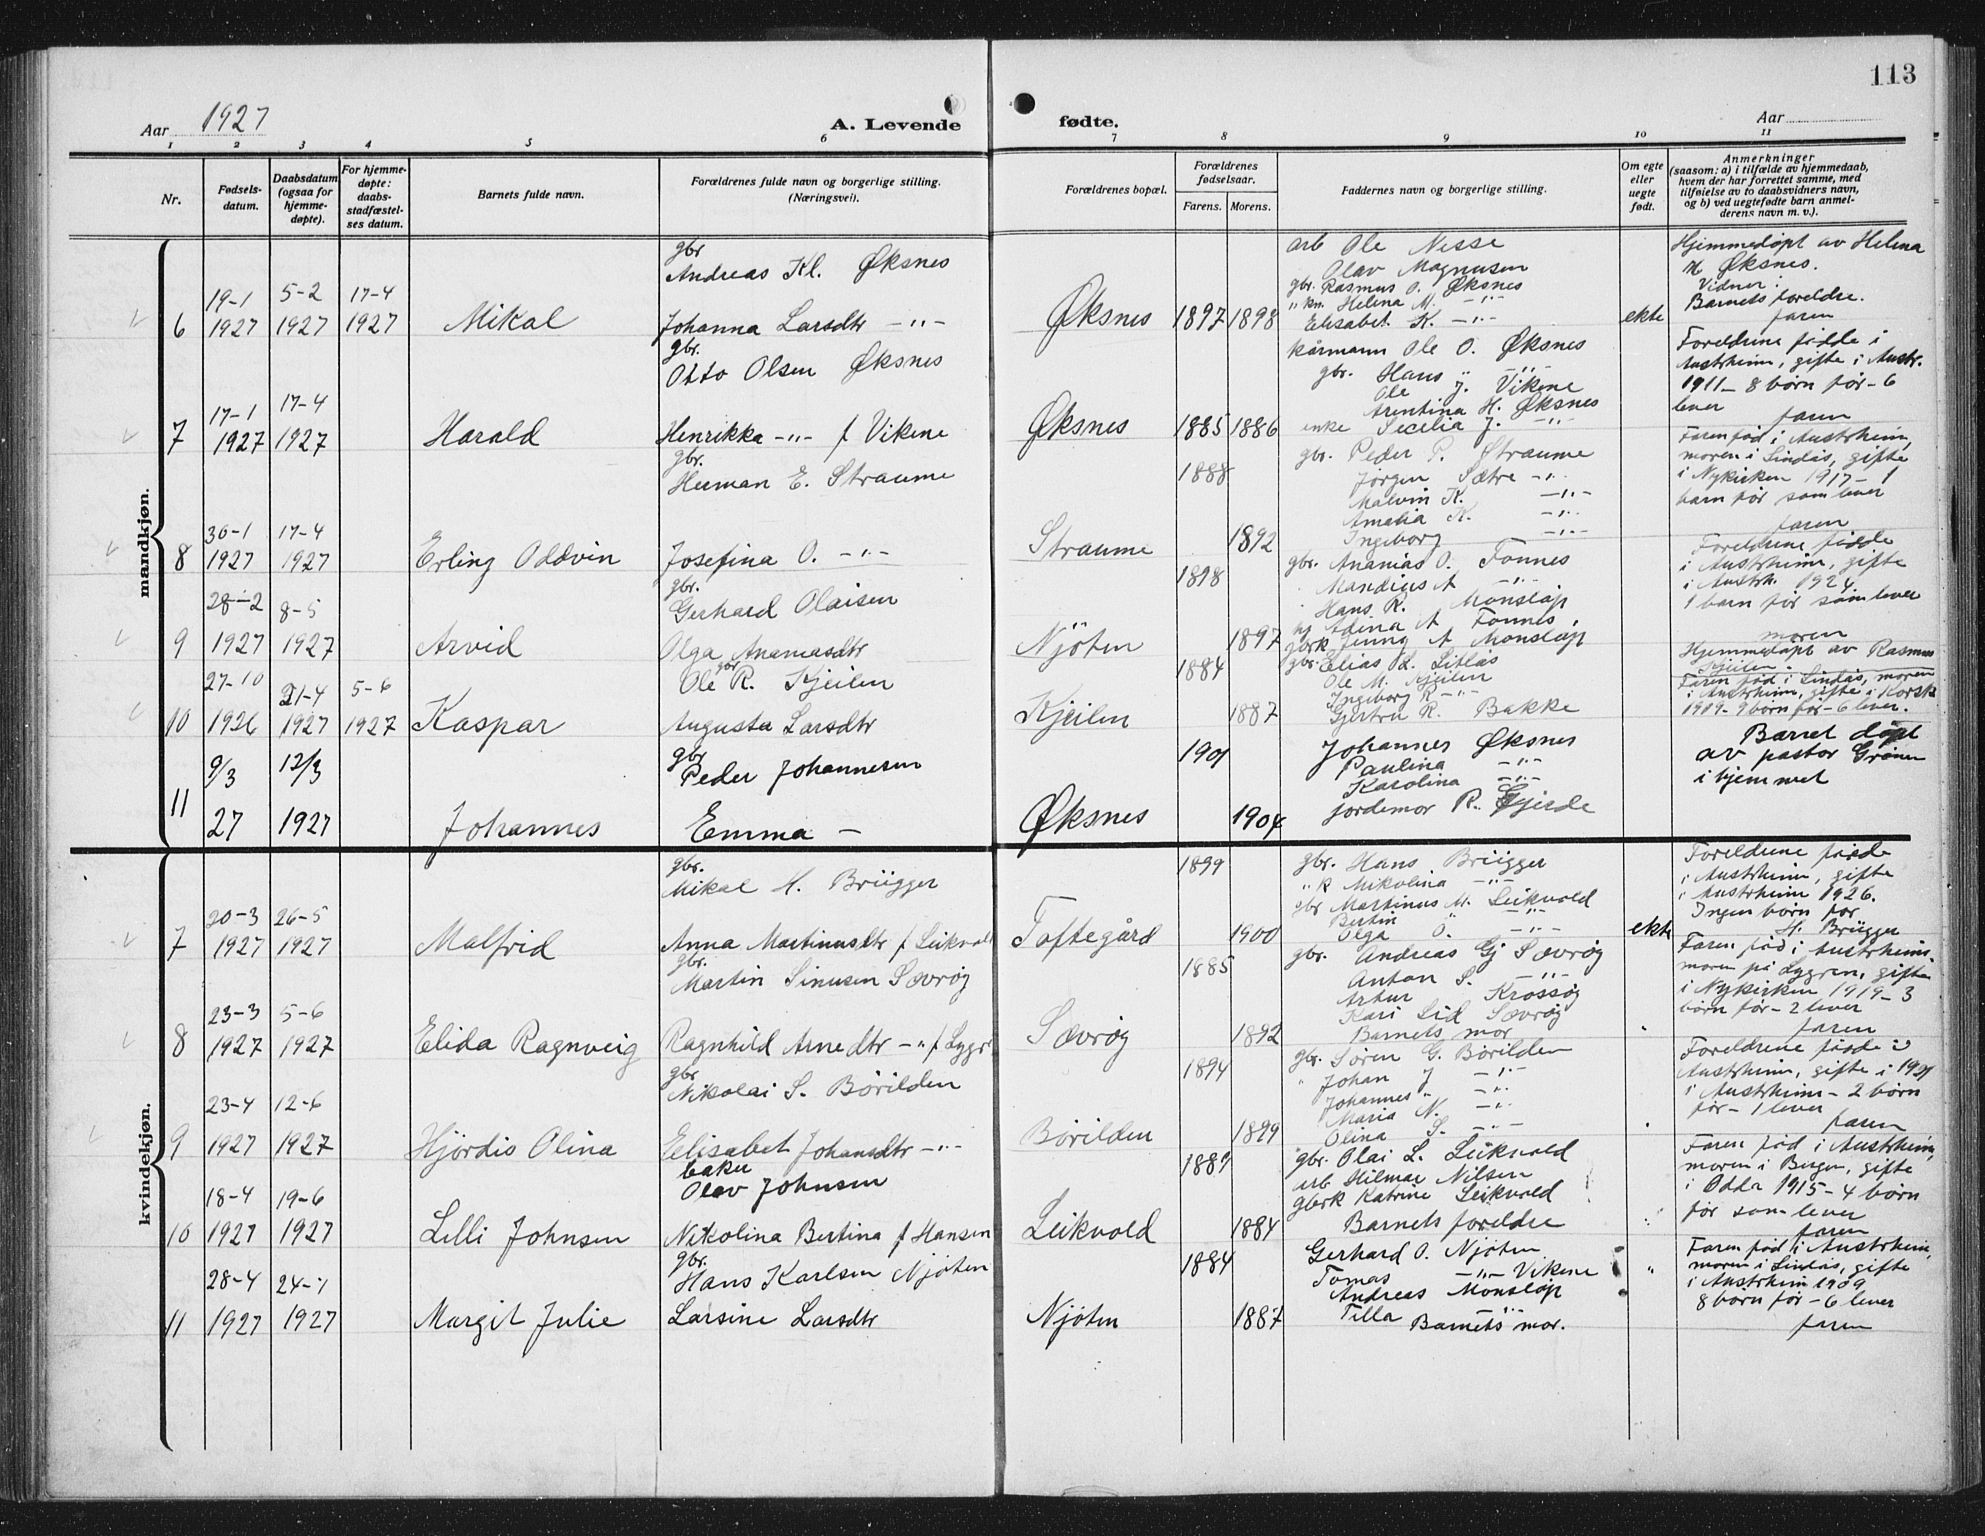 113
Aar 1927
A. Levende
fødte.
Aar
1 2 3 4 5 6 7 8 9 10 11
Nr.
Fødsels-
datum.
Daabsdatum
(ogsaa for
hjemme-
døpte).
For hjemme-
døpte:
daabs-
stadfæstel-
ses datum.
Barnets fulde navn.
Forældrenes fulde navn og borgerlige stilling.
(Næringsvei).
Forældrenes bopæl.
Forældrenes
fødselsaar.
Farens. Morens.
Faddernes navn og borgerlige stilling.
Om egte
eller
uegte
født.
Anmerkninger
(saasom: a) i tilfælde av hjemmedaab,
hvem der har forrettet samme, med
tilføielse av to daabsvidners navn,
og b) ved uegtefødte barn anmel-
derens navn m. v.).
mandkjøn.
6
19-1 5-2 17-4
1927 1927 1927
Mikal
gbr
Andreas Kl. Øksnes
Johanna Larsdtr -"-
Øksnes
1897 1898
arb Ole Nesse
Olav Magnusen
gbr. Rasmus O. Øksnes
" kn. Helena M. -"-
Elisabet K. -"-
ekte
Hjemmedøpt av Helena
M Øksnes.
Vidner:
Barnets foreldre.
faren
7
17-1 17-4
1927 1927
Harald
gbr.
Otto Olsen Øksnes
Henrikka -"- f Vikene
Øksnes
1885 1886
kårmann Ole O. Øksnes
gbr. Hans " -"-
Ole J. Vikene
Arentina H. Øksnes
enke Secilia J. -"-
Foreldrene fødde i
Austrheim, gifte i Austr.
1911 - 8 börn før - 6
lever
faren
8
30-1 17-4
1927 1927
Erling Oddvin
gbr.
Herman E. Straume
Josefina O. -"-
Straume
1888
1892
gbr. Peder P. Straume
Jørgen Sætre -"-
Malvin K. -"-
Amalia K. -"-
Ingeborg -"-
Faren fød i Austrheim,
moren i Lindås, gifte
i Nykirken 1917 - 1
barn før som lever
faren
9
28-2 8-5
1927 1927
Arvid
gbr.
Gerhard Olaisen
Olga Ananiasdtr
Njöten
1898
1897
gbr. Ananias O. Fonnes
Mandius A -"-
Hans R. Monsløp
Adina A Fonnes,
gbrk Jenny A Monsløp
Foreldrene fødde
i Austrheim, gifte
i Austrh. 1924
1 barn før som lever
moren
10
27-10 21-4 5-6
1926 1927 1927
Kaspar
gbr
Ole R. Kjeilen
Augusta Larsdtr
Kjeilen
1884
1887
gbr. Elias L. Litlås
Ole M. Kjeilen
Ingeborg R -"-
Gjertru R. Bakke
Hjemmedøpt av Rasmus
Kjeilen.
Faren fød i Lindås, moren
i Austrheim, gifte i Korsk
1909 - 9 börn før - 6 lever.
11
9/3 12/3
27 1927
Johannes
gbr
Peder Johannesen
Emma -
Øksnes
1901
1904
Johannes Øksnes
Paulina -"-
Karolina -"-
jordemor R. Gjerde
Barnet døpt
av pastor Grønen
i hjemmet
kvindekjøn.
7
20-3 26-5
1927 1927
Malfrid
gbr.
Mikal H. Brügger
Anna Martinusdtr f Leikvold
Toftegård
1899
1900
gbr. Hans Brügger
" k Mikolina -"-
gbr Martinus M. Leikvold
Bertin " -"-
Olga O. -"-
ekte
Foreldrene fødde
i Austrheim, gifte
i Austrheim 1926.
Ingen børn før
H. Brügger
8
23-3 5-6
1927 1927
Elida Ragnveig
gbr.
Martin Sinusen Sævrøy
Ragnhild Arnedtr -"- f Lygr
Sævrøy
1885
1892
gbr. Andreas Gj Sævrøy
Anton S. -"-
Artur Krossøy
Kari Lid Sævrøy
Barnets mor
"
Faren fød i Austrheim,
moren på Lygren, gifte
i Nykirken 1919 - 3
børn før - 2 lever
faren
9
23-4 12-6
1927 1927
Hjördis Olina
gbr
Nikolai S. Börilden
Elisabet Johansdtr -"-
Börilden
1894
1899
gbr. Søren G. Börilden
" Johan J -"-
Johannes " -"-
Maria N. -"-
Olina S. -"-
"
Foreldrene fødde i
Austrheim, gifte i 1921
i Austrheim - 2 børn
før - 1 lever
faren
10
18-4 19-6
1927 1927
Lilli Johnsen
baker
Olav Johnsen
Nikolina Bertina f Hansen
Leikvold
1889
1884
gbr. Olai L. Leikvold
arb Hilmar Nilsen
gbrk Katrine Leikvold
Barnets foreldre
"
Faren fød i Austrheim,
moren i Bergen, gifte
i Odda 1915 - 4 børn
før som lever
faren
11
28-4 24-7
1927 1927
Margit Julie
gbr.
Hans Karlsen Njöten
Larsine Larsdtr
Njöten
1884
1887
Gerhard O. Njöten
Tomas -"- Vikene
Andreas Monsløp
Tilla -"-
Barnets mor.
"
Faren fød i Austrheim,
moren i Lindås, gifte
i Austrheim 1909
8 børn før - 6 lever
faren